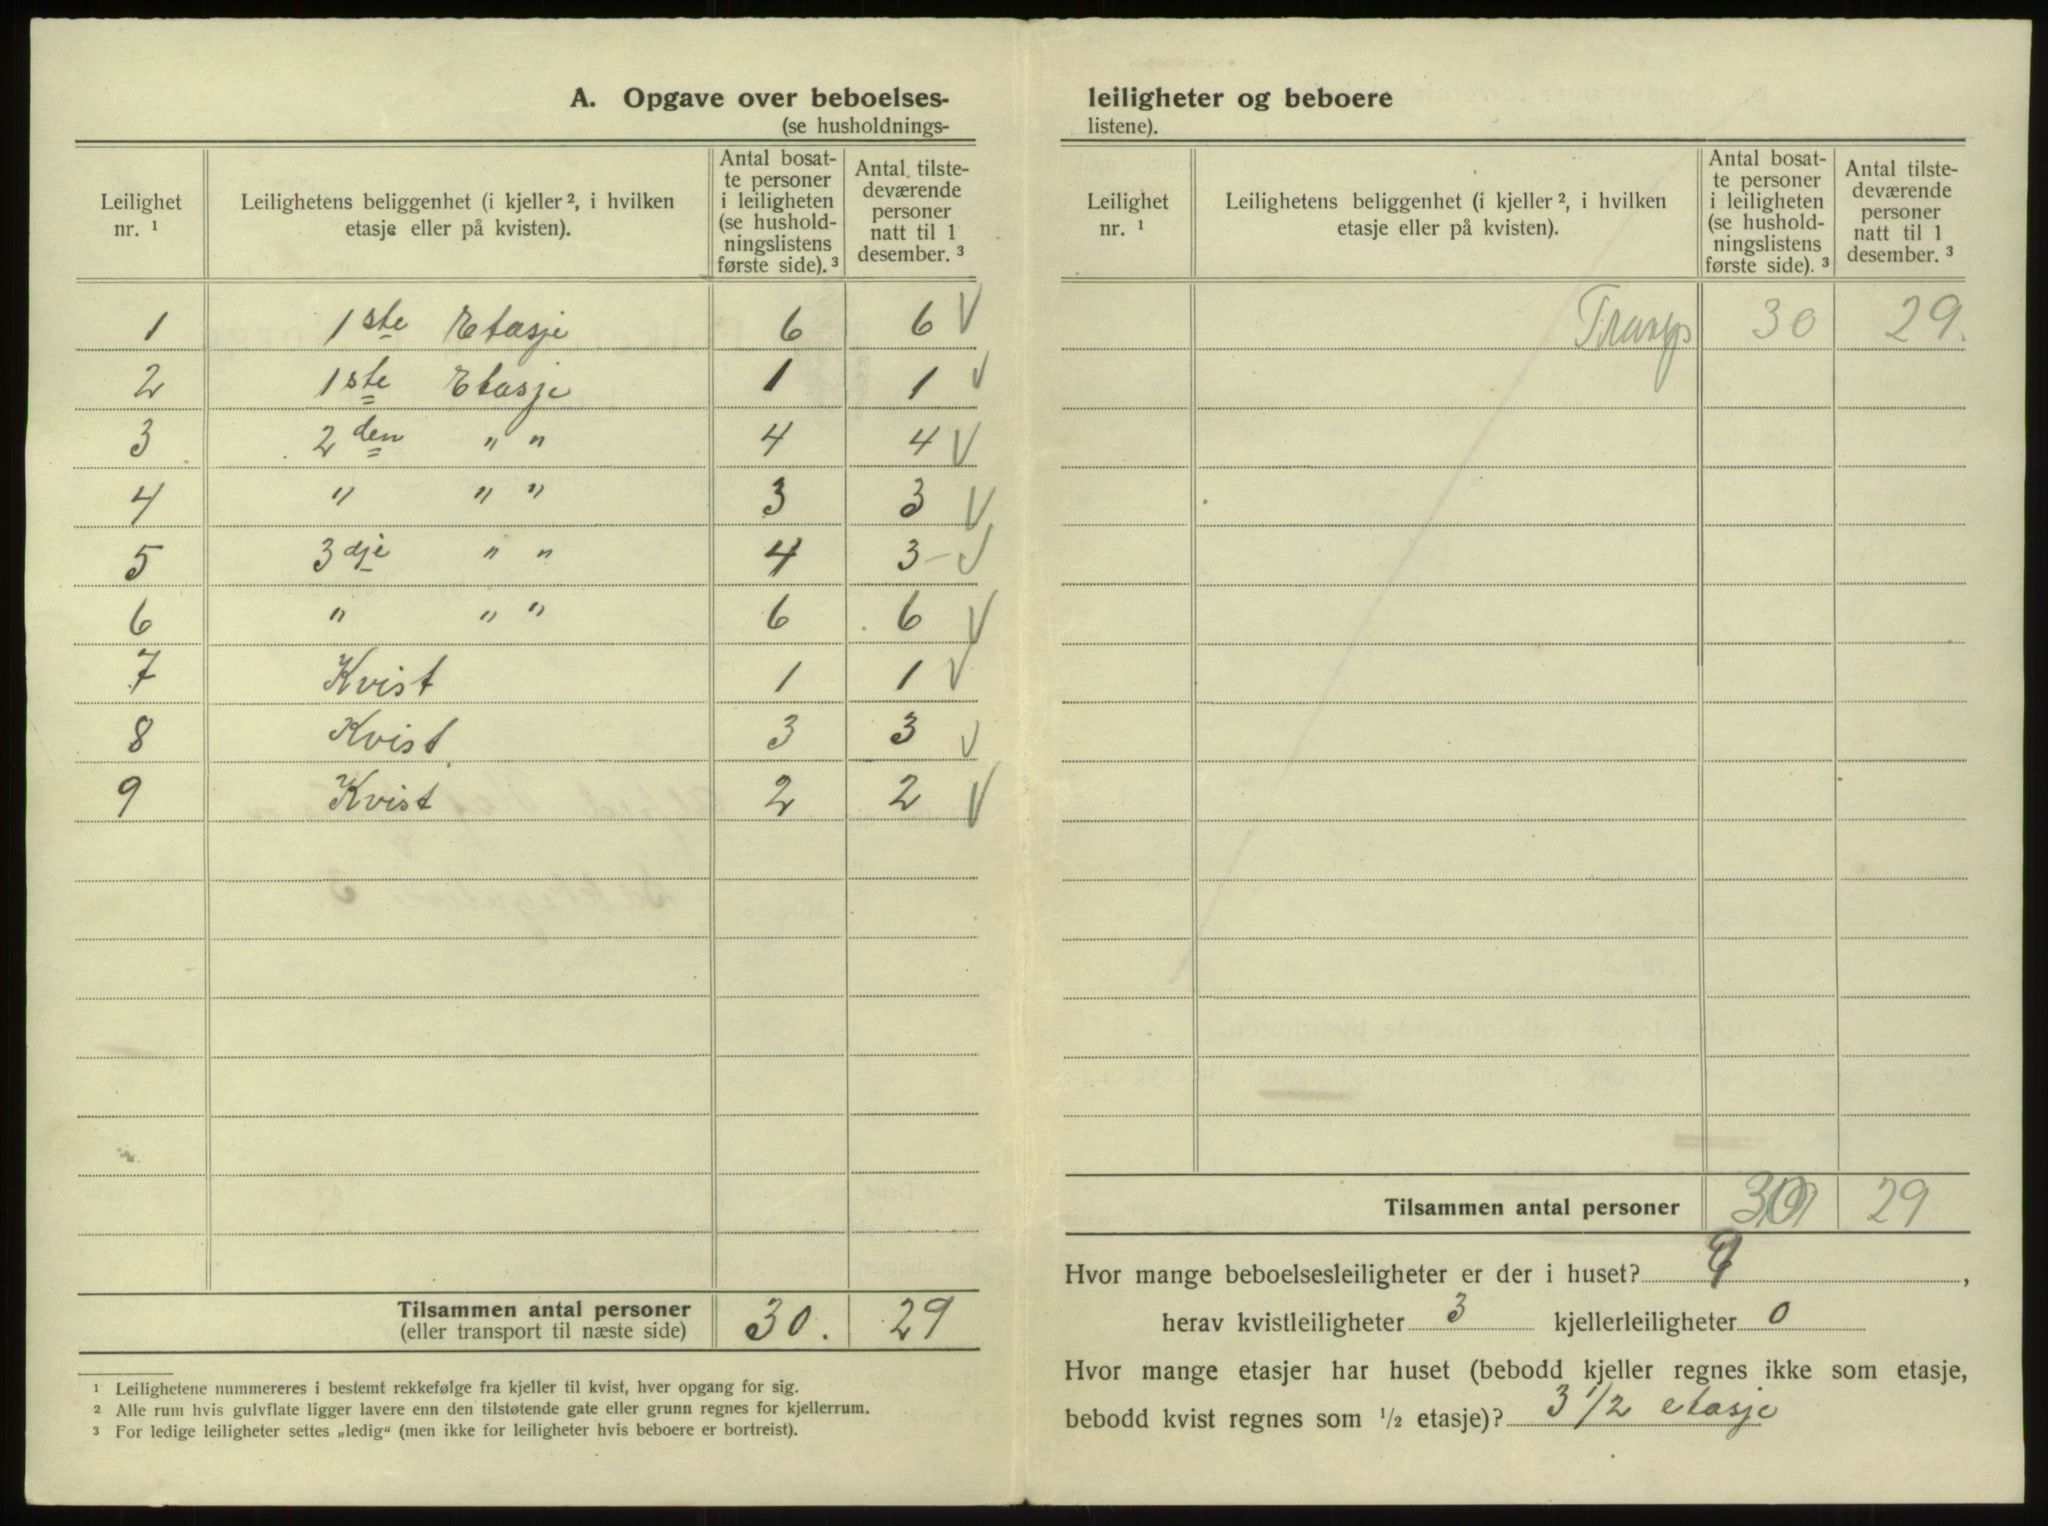 A. Opgave over beboelses-
(se husholdnings-
Leilighet nr. ¹ | Leilighetens beliggenhet (i kjeller ², i hvilken etasje eller på kvisten). | Antal bosatte personer i leiligheten (se husholdningslistens første side). ³ | Antal tilstedeværende personer natt til 1 desember. ³
1 1ste Etasje 6 6 √
2 1ste Etasje 1 1 √
3 2den " " 4 4 √
4 " " " 3 3 √
5 3dje " " 4 3 – √
6 " " " 6 6 √
7 Kvist 1 1 √
8 Kvist 3 3 √
9 Kvist 2 2 √
Tilsammen antal personer 30. 29
(eller transport til næste side)
¹ Leilighetene nummereres i bestemt rekkefølge fra kjeller til kvist, hver opgang for sig.
² Alle rum hvis gulvflate ligger lavere enn den tilstøtende gate eller grunn regnes for kjellerrum.
³ For ledige leiligheter settes „ledig“ (men ikke for leiligheter hvis beboere er bortreist).
leiligheter og beboere
listene).
Leilighet nr. ¹ | Leilighetens beliggenhet (i kjeller ², i hvilken etasje eller på kvisten). | Antal bosatte personer i leiligheten (se husholdningslistens første side). ³ | Antal tilstedeværende personer natt til 1 desember. ³
30 29.
Tilsammen antal personer 30 29
Hvor mange beboelsesleiligheter er der i huset? 9,
herav kvistleiligheter 3 kjellerleiligheter 0
Hvor mange etasjer har huset (bebodd kjeller regnes ikke som etasje,
bebodd kvist regnes som ½ etasje)? 3 1/2 etasje